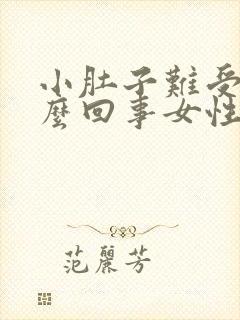 小肚子難受
麼回事女性
范麗芳